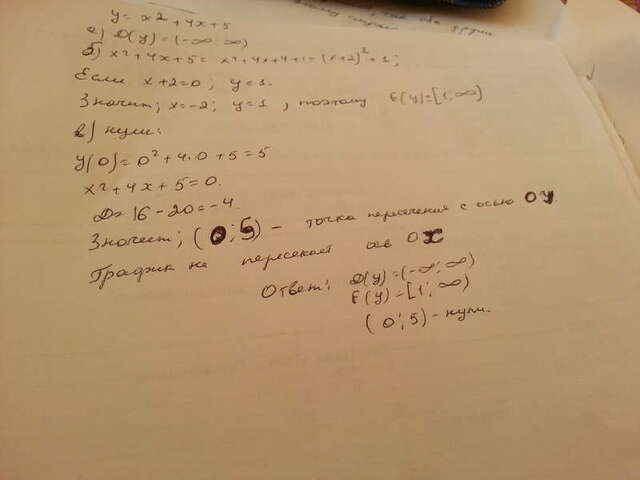 y = x2 + 4x + 5
а) D(y) = (-∞; ∞)
б) x² + 4x + 5 = x² + 4x + 4 + 1 = (x+2)² + 1;
Если x+2=0; y=1.
Значит; x=-2; y=1, поэтому E(y)=[1; ∞)
в) нули:
y(0) = 0² + 4·0 + 5 = 5
x² + 4x + 5 = 0.
D = 16 - 20 = -4.
Значит; (0; 5) - точка пересечения с осью ОУ.
График не пересекает ось ОХ
Ответ: D(y) = (-∞; ∞)
E(y) = [1; ∞)
(0; 5) - нули.